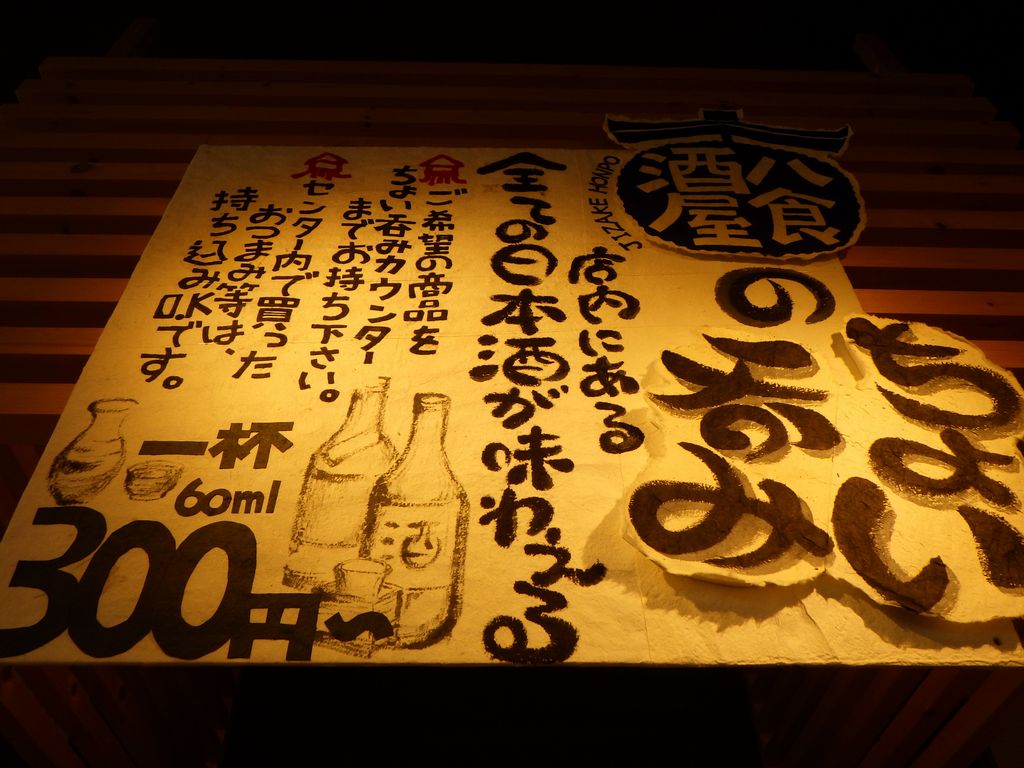 八食
酒屋
JIZAKE HONPO
の
ちょい
呑み
店内にある
全ての日本酒が味わえる
ご希望の商品を
ちょい呑みカウンター
までお持ち下さい。
センター内で買った
おつまみ等は、
持ち込みO.K.です。
一杯
60ml
300円〜
酒